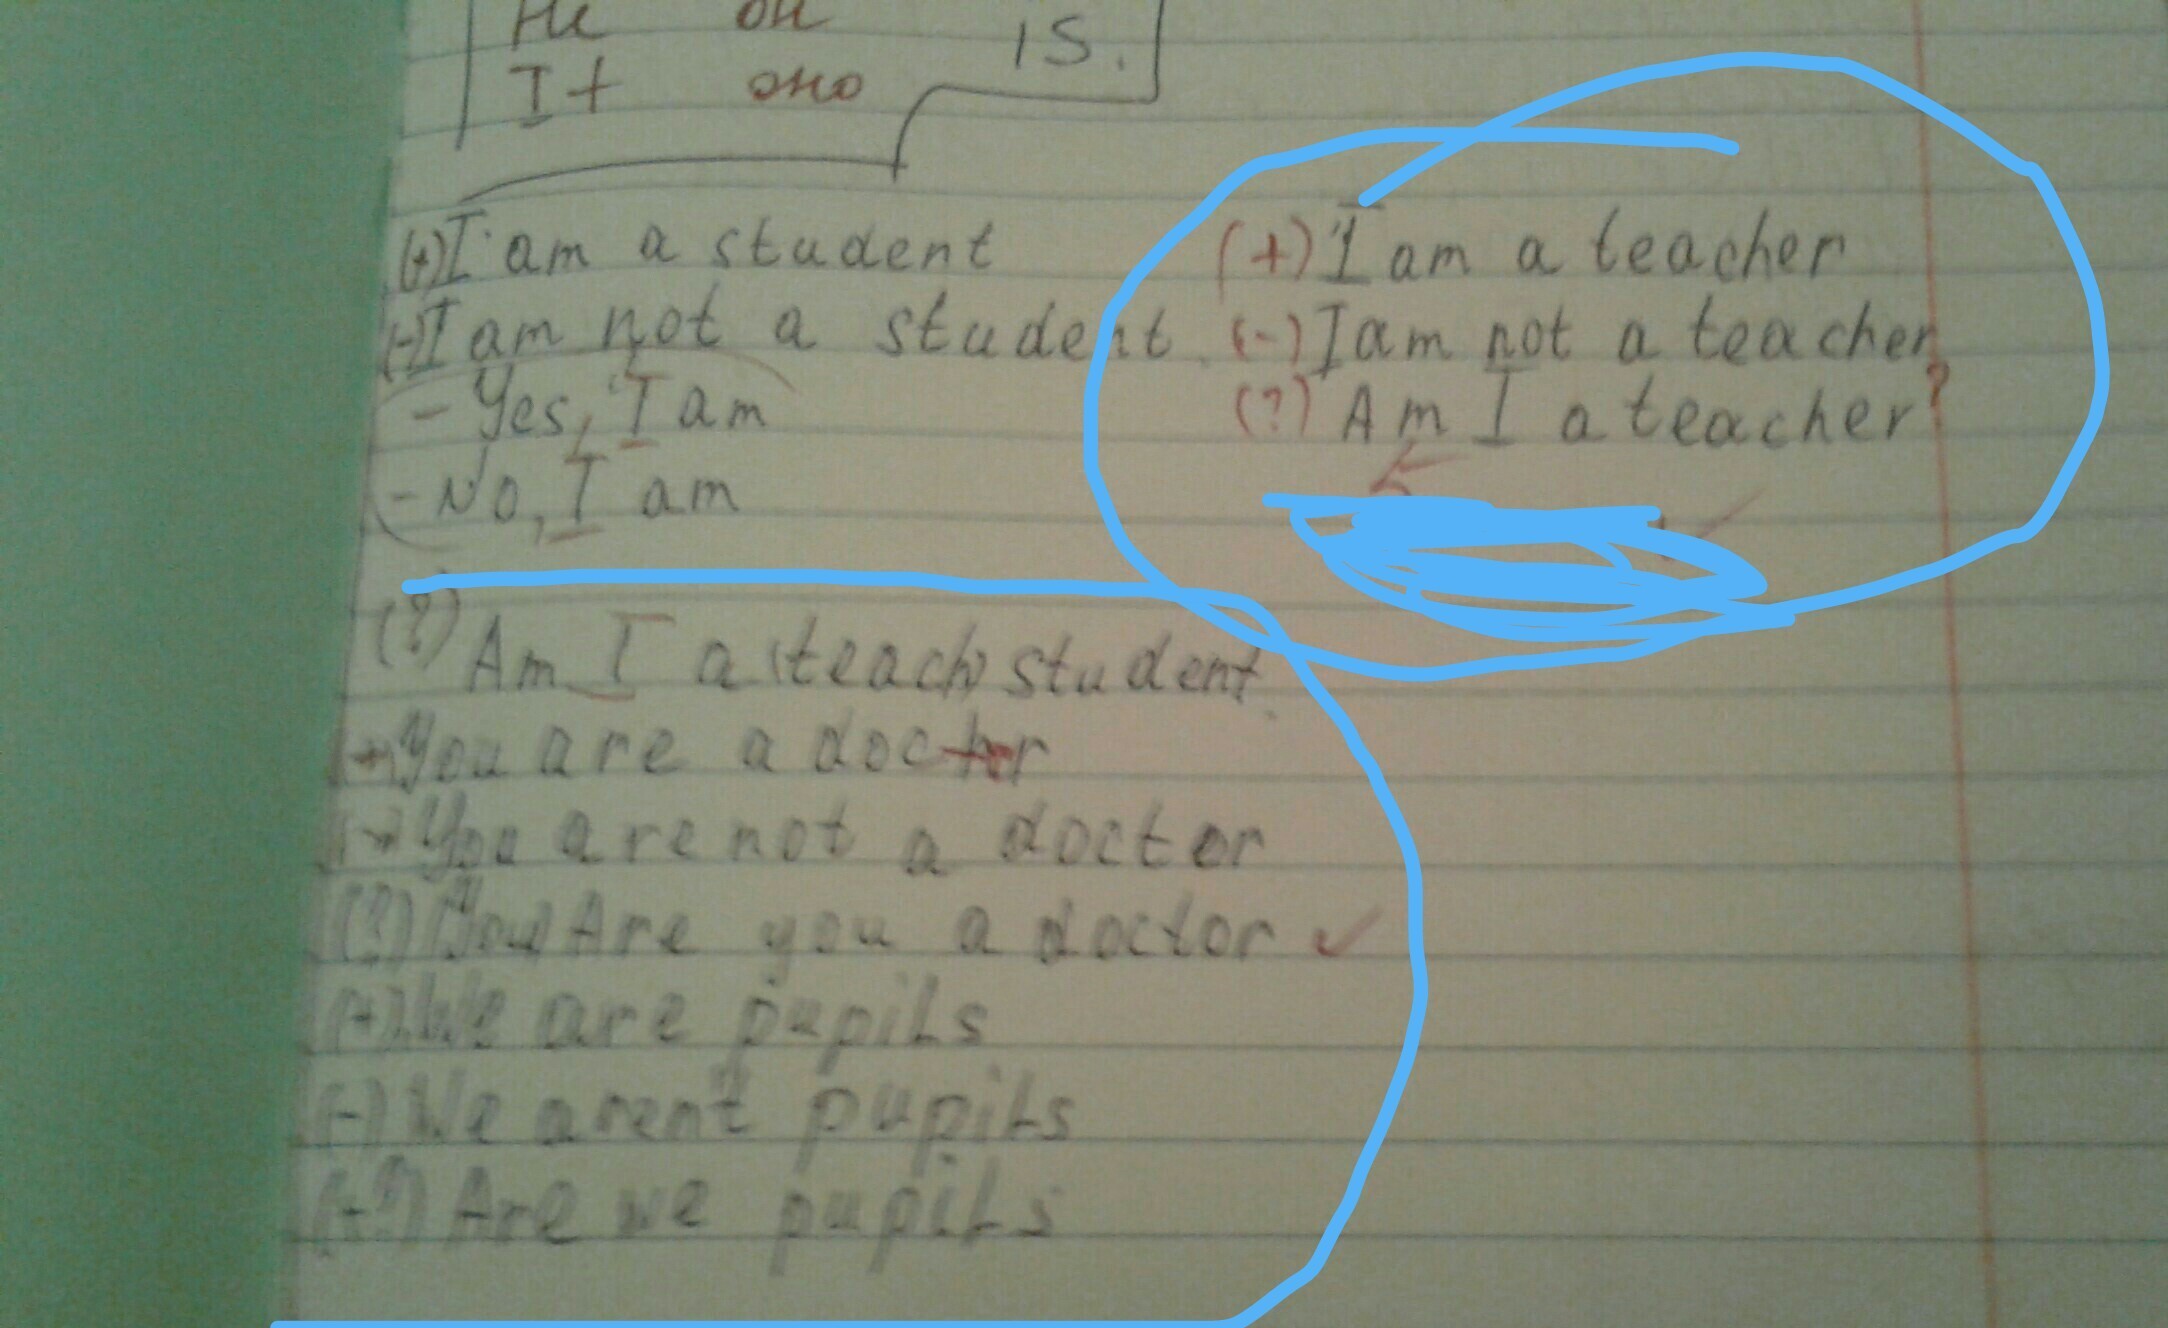 He он
is.
It оно
(+) I am a student
(-) I am not a student
- Yes, I am
- No, I am
(+) I am a teacher
(-) I am not a teacher
(?) Am I a teacher?
5
(?) Am I a (teach) student
+ You are a doctor
(-) You are not a doctor
(?) (You) Are you a doctor
(+) We are pupils
(-) We arent pupils
(?) Are we pupils